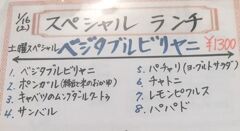 1/16(土) スペシャル ランチ
土曜スペシャル
ベジタブルビリヤニ ¥1300
1. ベジタブルビリヤニ
2. ポンガル(緑豆と米のおかゆ)
3. キャベツのムングダールクートゥ
4. サンバル
5. パチャリ(ヨーグルトサラダ)
6. チャトニ
7. レモンピクルス
8. パパド